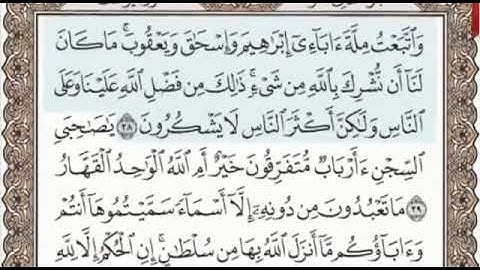 وَٱتَّبَعۡتُ مِلَّةَ ءَابَآءِيٓ إِبۡرَٰهِيمَ وَإِسۡحَٰقَ وَيَعۡقُوبَۚ مَا كَانَ
لَنَآ أَن نُّشۡرِكَ بِٱللَّهِ مِن شَيۡءٖۚ ذَٰلِكَ مِن فَضۡلِ ٱللَّهِ عَلَيۡنَا وَعَلَى
ٱلنَّاسِ وَلَٰكِنَّ أَكۡثَرَ ٱلنَّاسِ لَا يَشۡكُرُونَ ٣٨ يَٰصَٰحِبَيِ
ٱلسِّجۡنِ ءَأَرۡبَابٞ مُّتَفَرِّقُونَ خَيۡرٌ أَمِ ٱللَّهُ ٱلۡوَٰحِدُ ٱلۡقَهَّارُ
٣٩ مَا تَعۡبُدُونَ مِن دُونِهِۦٓ إِلَّآ أَسۡمَآءٗ سَمَّيۡتُمُوهَآ أَنتُمۡ
وَءَابَآؤُكُم مَّآ أَنزَلَ ٱللَّهُ بِهَا مِن سُلۡطَٰنٍۚ إِنِ ٱلۡحُكۡمُ إِلَّا لِلَّهِ